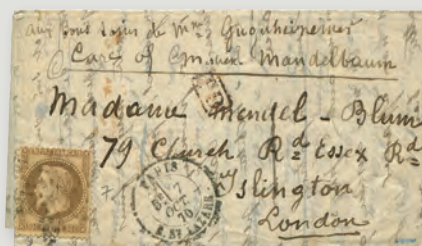 aux bons soins de Mme Guguheimer
Care of Mandelbaum
Madame Mendel - Blum
79 Church Rd Essex Rd
Islington
London
PARIS
7
OCT
70
R. ST LAZARE